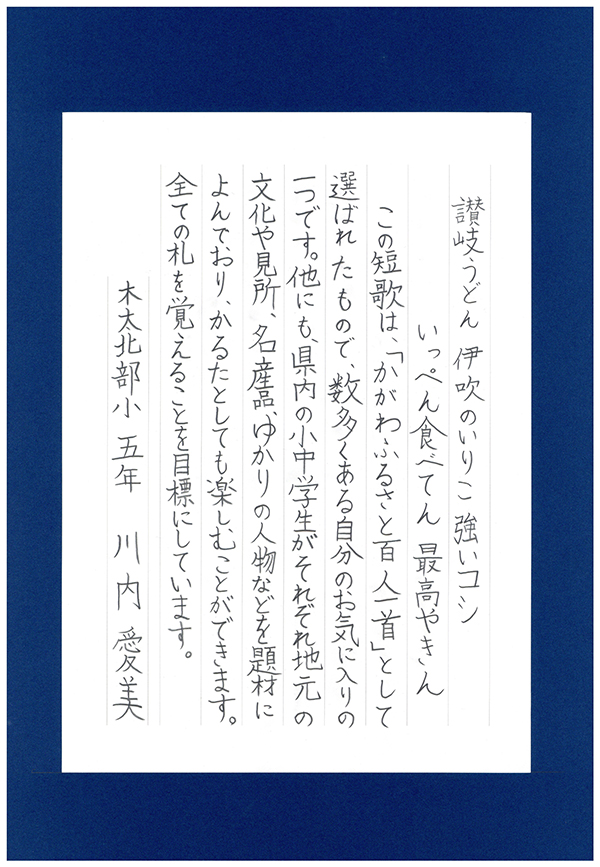 讃岐うどん 伊吹のいりこ 強いコシ
いっぺん食べてん 最高やきん
この短歌は、「かがわふるさと百人一首」として
選ばれたもので、数多くある自分のお気に入りの
一つです。他にも、県内の小中学生がそれぞれ地元の
文化や見所、名産品、ゆかりの人物などを題材に
よんでおり、かるたとしても楽しむことができます。
全ての札を覚えることを目標にしています。
木太北部小 五年 川内 愛美